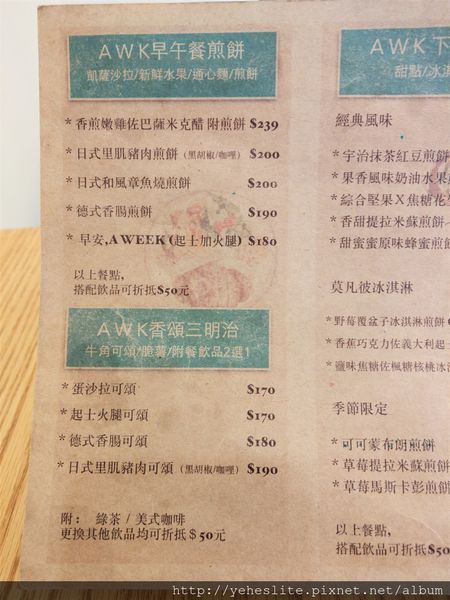 AWK早午餐煎餅
凱薩沙拉/新鮮水果/通心麵/煎餅
*香煎嫩雞佐巴薩米克醋 附煎餅 $239
*日式里肌豬肉煎餅 (黑胡椒/咖哩) $200
*日式和風章魚燒煎餅 $200
*德式香腸煎餅 $190
* 早安,AWEEK(起士加火腿) $180
以上餐點,
搭配飲品可折抵$50元
AWK香頌三明治
牛角可頌/脆薯/附餐飲品2選1
*蛋沙拉可頌 $170
*起士火腿可頌 $170
*德式香腸可頌 $180
*日式里肌豬肉可頌 (黑胡椒/咖哩) $190
附: 綠茶 / 美式咖啡
更換其他飲品均可折抵$50元
AWK下
甜點/冰淇
經典風味
*宇治抹茶紅豆煎餅
*果香風味奶油水果
*綜合堅果X焦糖花
*香甜提拉米蘇煎餅
*甜蜜蜜原味蜂蜜煎
莫凡彼冰淇淋
*野莓覆盆子冰淇淋煎餅
*香蕉巧克力佐義大利起
*鹽味焦糖佐楓糖核桃冰
季節限定
*可可蒙布朗煎餅
*草莓提拉米蘇煎餅
*草莓馬斯卡彭煎餅
以上餐點,
搭配飲品可折抵$50
http://yeheslite.pixnet.net/album